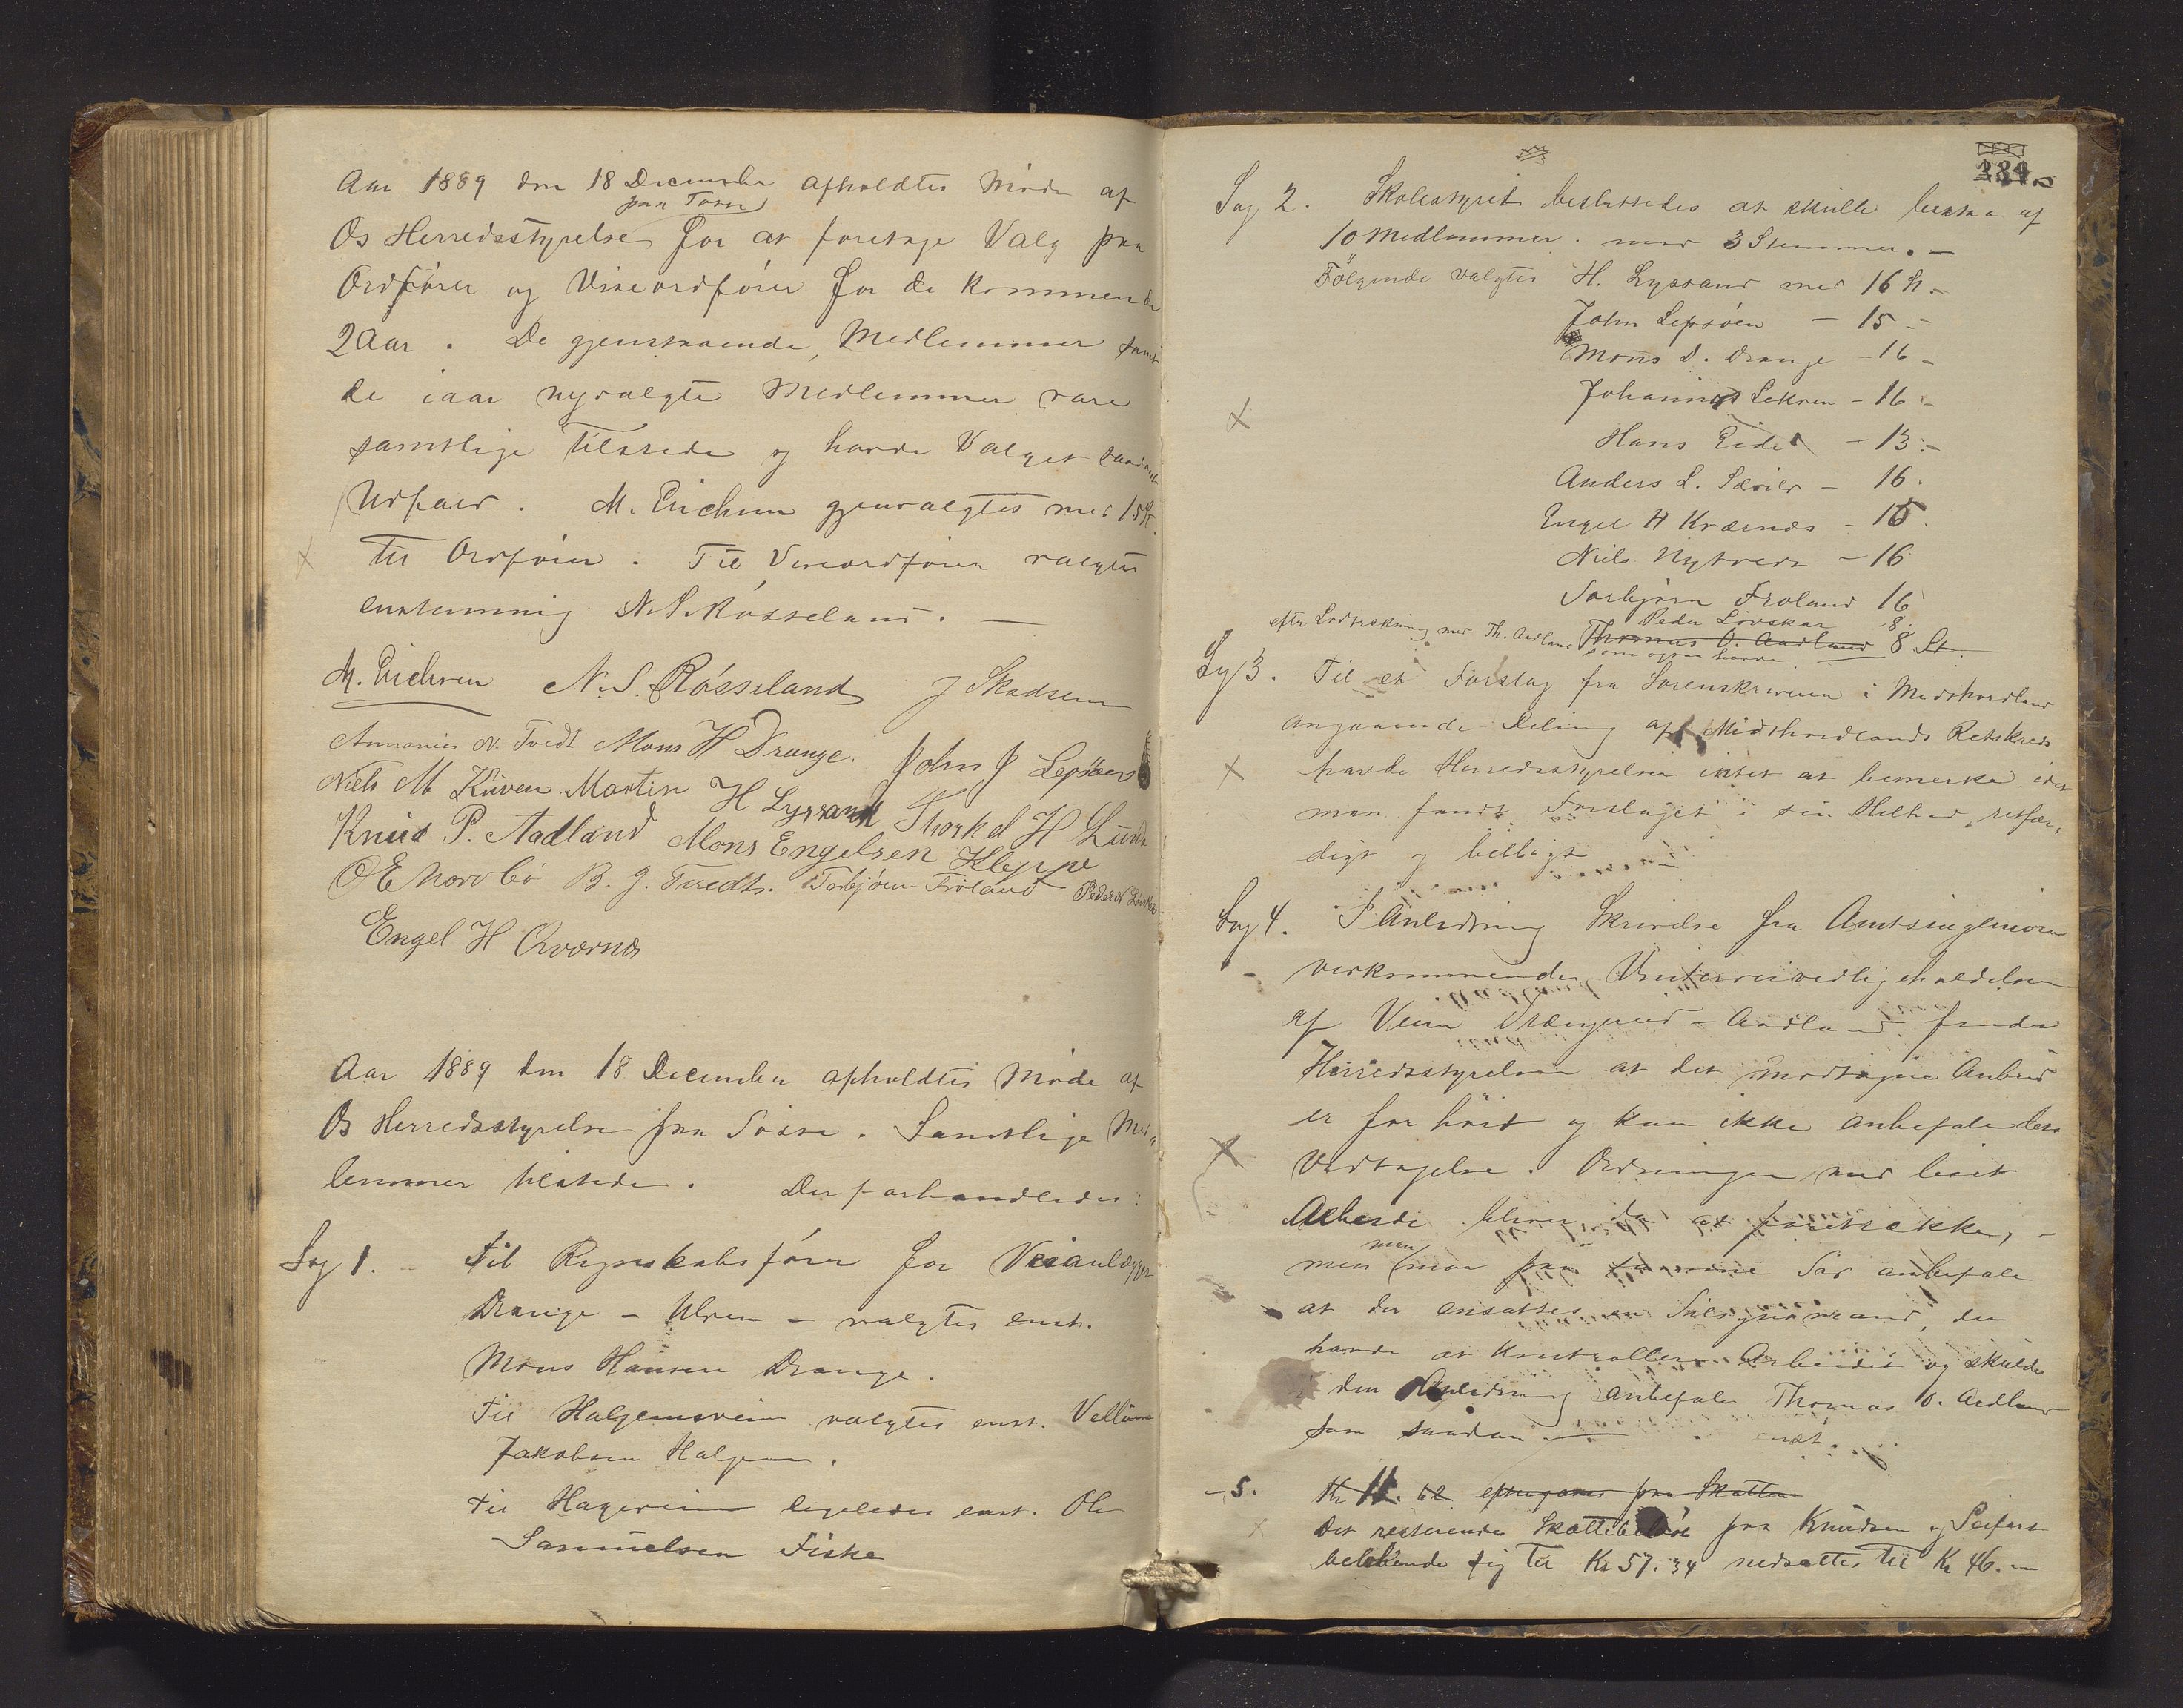 Aar 1889 den 18 December afholdtes Møde af
paa Tøsse
Os Herredsstyrelse for at foretage Valg paa
Ordfører og Viseordfører for de kommende
2 Aar. De gjenstaaende Medlemmer samt
de iaar nyvalgte Medlemmer vare
samtlige tilstede og havde Valget saadant
Udfald. M. Erichsen gjenvalgtes med 15 St.
til Ordfører. Til Viseordfører valgtes
enstemmig N. S. Røsseland. —
M. Erichsen N. S. Røsseland J Skadsem
Annanias N. Tvedt Mons H Drange. John J Lepsøen
Niels M Kuven Martin H Lyssand Thorkel H Lunde
Knud P. Aadland Mons Engelsen Kleppe
O E Morobø B. J. Tvedt. Torbjørn Frøland Peder N Løvskar
Engel H Qværnæs
Aar 1889 den 18 December afholdtes Møde af
Os Herredsstyrelse paa Tøsse. Samtlige Med-
lemmer tilstede. Der forhandledes:
Sag 1. – Til Regnskabsfører for Veianlægget
Drange – Ulven – valgtes enst.
Mons Hansen Drange.
Til Halgemsveien valgtes enst.
Jakobsen Halgem.
Til Hageveien ligeledes enst. Ole
Samuelsen Fiske
284.
Sag 2. Skolestyret besluttedes at skulle bestaa af
10 Medlemmer. mod 3 Stemmer. —
Følgende valgtes H. Lyssand med 16 St. –
John Lepsøen – 15 –
Mons D. Drange – 16 –
Johannes Lekven – 16 –
Hans Eide – 13 –
Anders L. Sævild – 16.
Engel H Kværnæs – 15.
Niels Nytveit – 16
Torbjørn Frøland 16
Peder Løvskar 8.
efter Lodtrækning med Th. Aadland Thomas O. Aadland 8 St.
som ogsaa havde
Sag 3. Til et Forslag fra Sorenskriveren i Midthordland
angaaende Deling af Midthordlands Retskreds
havde Herredsstyrelsen intet at bemerke, idet
man fandt Forslaget i sin Helhed retfær-
digt og belbigt
Sag 4. I Anledning Skrivelse fra Amtsingeniøren
vedkommende Vinterveivedligeholdelsen
af Veien Drængereid – Aadland finder
Herredsstyrelsen at det modtagne Anbud
er for høit og kan ikke anbefale dets
Vedtagelse. Ordningen med leiet
Arbeide bliver da at foretrække, –
man
men maa paa saamme Tid anbefale
at der ansættes en Tilsynsmand, der
havde at kontrollere Arbeidet og skulde
i den Anledning anbefale Thomas O. Aadland
som saadan — enst.
– 5. Kr 11. 62 eftergaves paa Skatten
Det resterende Skattebeløb fra Knudsen og Seifert
beløbende sig til Kr 57.34 nedsættes til Kr 46. –